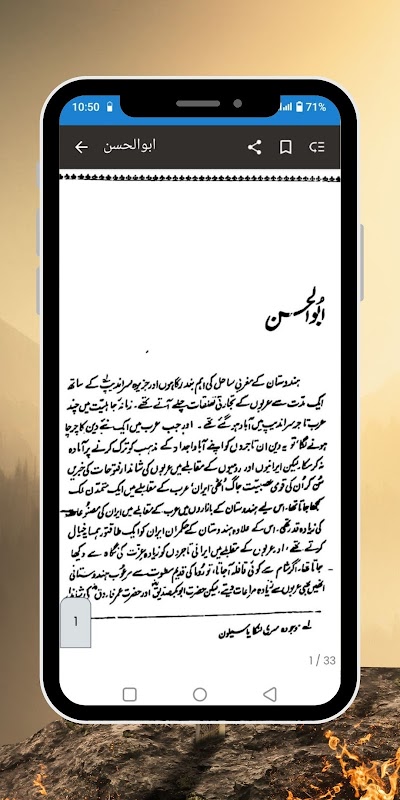 10:50
71%
ابوالحسن
ابُوالحسن
ہندوستان کے مغربی ساحل کی اہم بندرگاہوں اور جزیرہ سراندیپ کے ساتھ
ایک مدت سے عربوں کے تجارتی تعلقات چلے آتے تھے۔ زمانۂ جاہلیت میں چند
عرب تاجر سراندیپ میں آباد ہو گئے تھے۔ اور جب عرب میں ایک نئے دین کا چرچا
ہونے لگا تو یہ دین ان تاجروں کو اپنے آباؤ اجداد کے مذہب کو ترک کرنے پر آمادہ
نہ کر سکا لیکن ایرانیوں اور رومیوں کے مقابلے میں عربوں کی شاندار فتوحات کی خبریں
سُن کر اُن کی قومی عصبیت جاگ اُٹھی ایران عرب کے مقابلے میں ایک متمدن ملک
سمجھا جاتا تھا۔ اس لیے ہندوستان کے بازاروں میں عرب کے مقابلے میں ایران کی مصنوعات
کی زیادہ قدر تھی۔ اس کے علاوہ ہندوستان کے حکمران ایران کو ایک طاقتور ہمسایہ خیال
کرتے تھے، اور عربوں کے مقابلے میں ایرانی تاجروں کو زیادہ عزت کی نگاہ سے دیکھا
جاتا تھا۔ اگر شام سے کوئی قافلہ آ جاتا، تو روما کی قدیم سطوت سے مرعوب ہندوستانی
انھیں بھی عربوں سے زیادہ مراعات دیتے، لیکن حضرت ابوبکر صدیقؓ اور حضرت عمر فاروقؓ کی شاندار
لے موجودہ سری لنکا یا سیلون
1
1 / 33